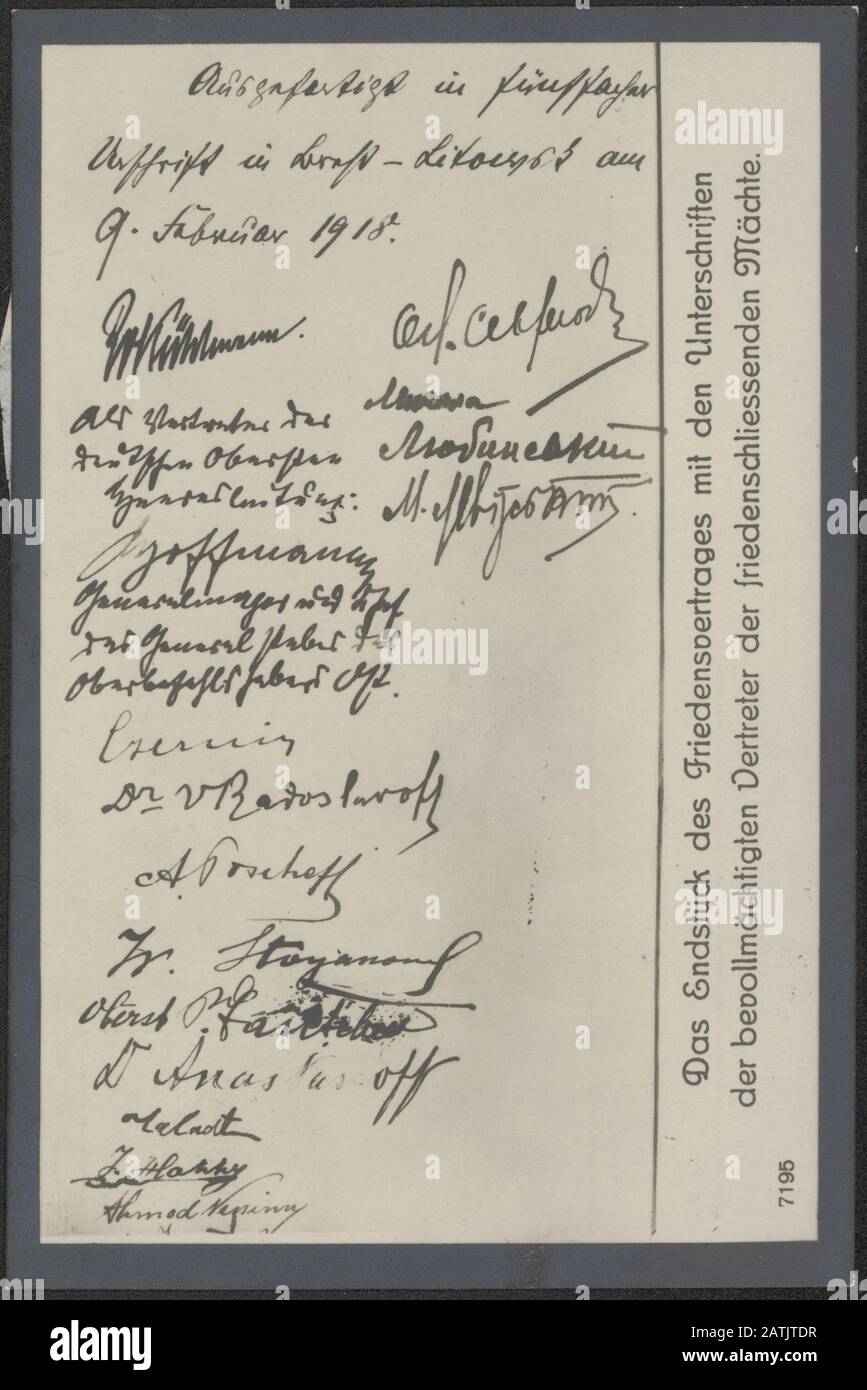 Ausgefertigt in fünffacher
Urschrift in Brest-Litowsk am
9. Februar 1918.
Kühlmann.
Als Vertreter der
deutschen Obersten
Heeresleitung:
Hoffmann
Generalmajor und Chef
des Generalstabes des
Oberbefehlshabers Ost.
Czernin
Dr VRadoslawoff
A. Toscheff
Iv. Stoyanowitch
Oberst P.
Dr Anastassoff
Talaat
J. Hakky
Ahmed Nessimy
Ол. Севрюк
Микола
Любинський
М. Левитський.
Das Endstück des Friedensvertrages mit den Unterschriften
der bevollmächtigten Vertreter der friedenschliessenden Mächte.
7195
alamy
Image ID: 2ATJTDR
www.alamy.com